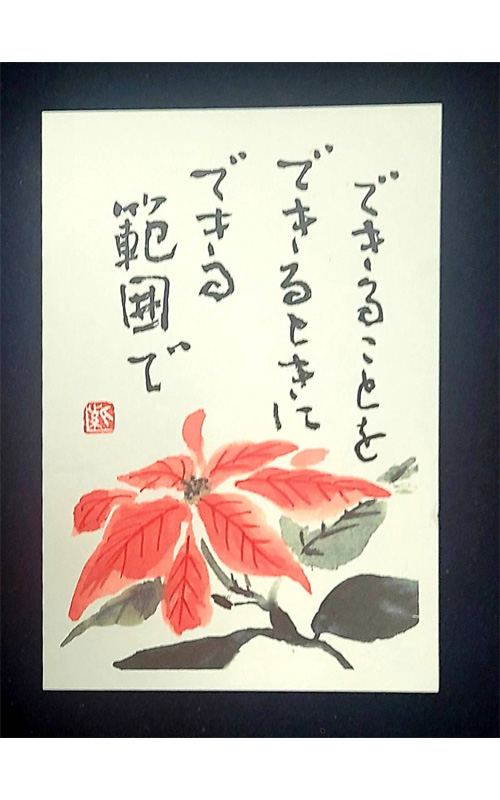 できることを
できるときに
できる
範囲で